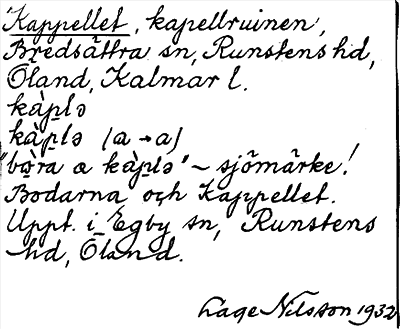 Kappellet, kapellruinen,
Bredsättra sn, Runstens hd,
Öland, Kalmar l.
kàp̠lə
kàp̠lə (a → a)
"bo̠ra a kàp̠lə" ~ sjömärke!
Bodarna och Kappellet.
Uppt. i Egby sn, Runstens
hd, Öland.
Lage Nilsson 1932